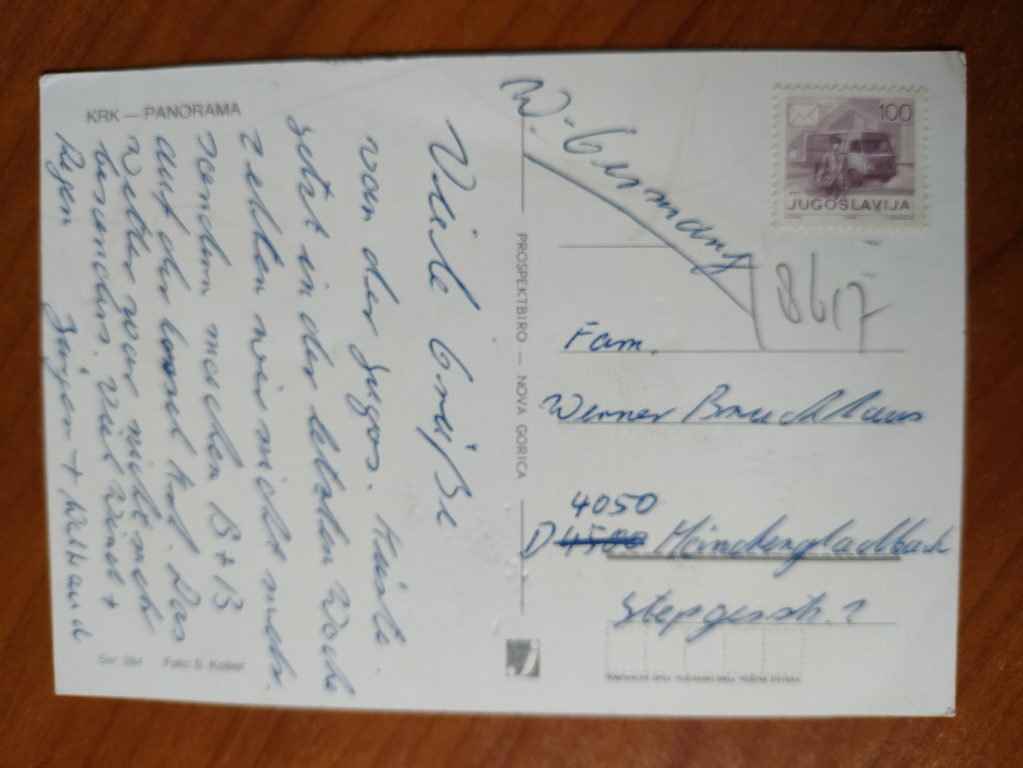 KRK — PANORAMA
Viele Grüße
von der Jugos. Küste.
Jetzt in der letzten Woche
zelten wir nicht mehr,
sondern machen B+B
auf der Insel Krk. Das
Wetter war nicht mehr
besonders. Viel Wind +
Regen
Jürgen + Waltraud
Ser. 284 Foto: S. Kosier
PROSPEKTBIRO — NOVA GORICA
W.-Germany
100
JUGOSLAVIJA
Fam.
Werner
4050
D 4500 Mönchengladbach
Stepgesstr.